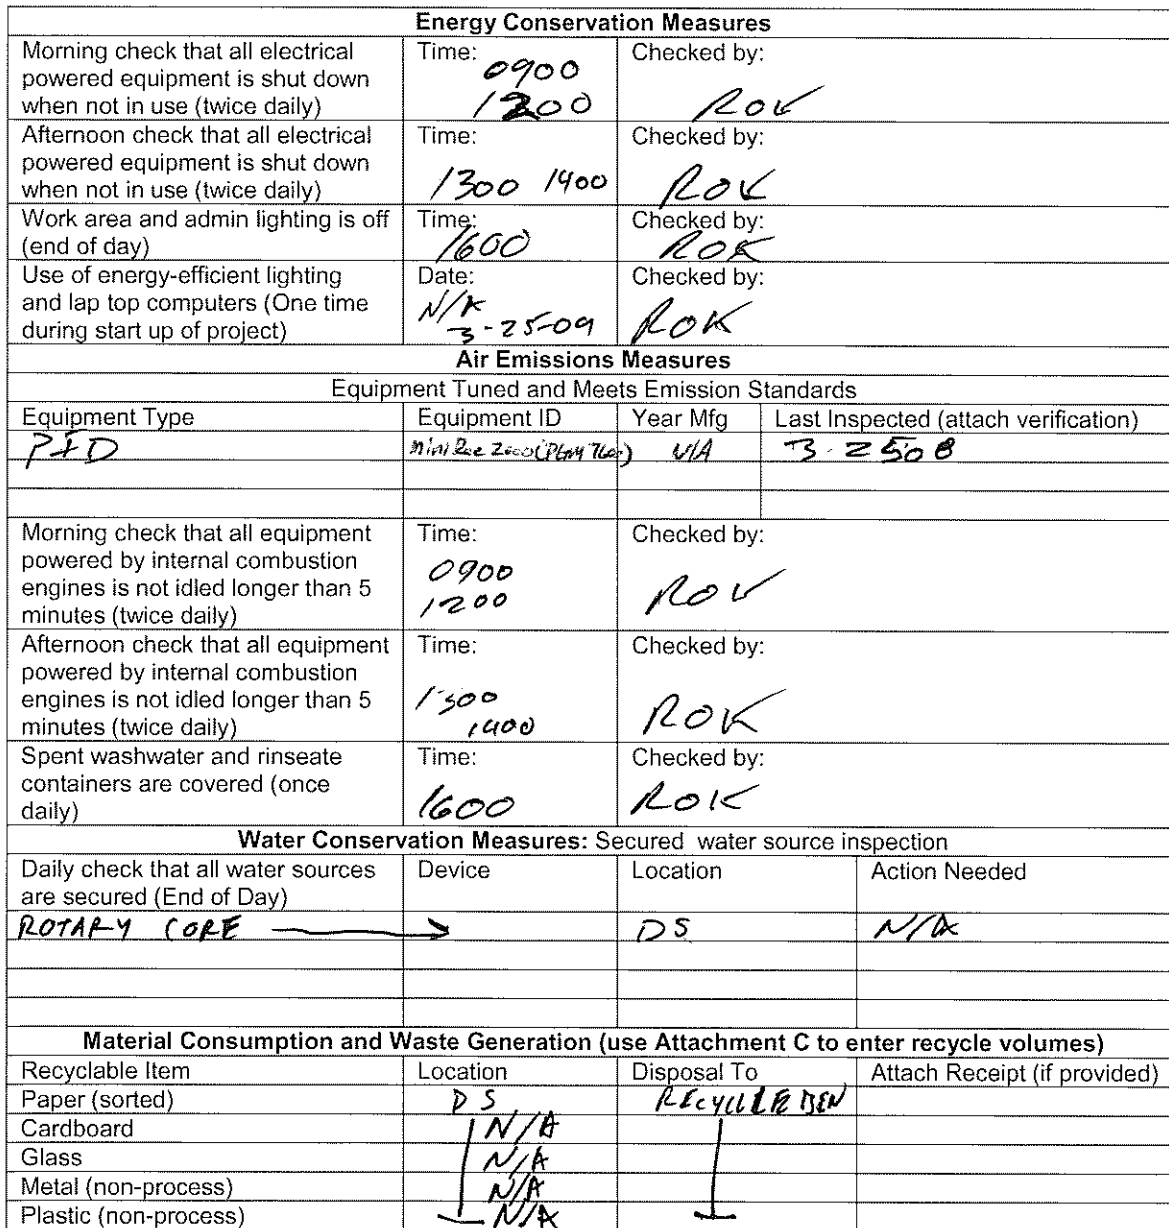 Energy Conservation Measures
Morning check that all electrical powered equipment is shut down when not in use (twice daily)
Time: 0900 1200
Checked by: ROK
Afternoon check that all electrical powered equipment is shut down when not in use (twice daily)
Time: 1300 1400
Checked by: ROK
Work area and admin lighting is off (end of day)
Time: 1600
Checked by: ROK
Use of energy-efficient lighting and lap top computers (One time during start up of project)
Date: N/A 3-25-09
Checked by: ROK
Air Emissions Measures
Equipment Tuned and Meets Emission Standards
Equipment Type Equipment ID Year Mfg Last Inspected (attach verification)
PID Mini Rae 2000 N/A 3-25-08
Morning check that all equipment powered by internal combustion engines is not idled longer than 5 minutes (twice daily)
Time: 0900 1200
Checked by: ROK
Afternoon check that all equipment powered by internal combustion engines is not idled longer than 5 minutes (twice daily)
Time: 1300 1400
Checked by: ROK
Spent washwater and rinseate containers are covered (once daily)
Time: 1600
Checked by: ROK
Water Conservation Measures: Secured water source inspection
Daily check that all water sources are secured (End of Day)
Device Location Action Needed
ROTARY CORE DS N/A
Material Consumption and Waste Generation (use Attachment C to enter recycle volumes)
Recyclable Item Location Disposal To Attach Receipt (if provided)
Paper (sorted) DS RECYCLE BIN
Cardboard N/A
Glass N/A
Metal (non-process) N/A
Plastic (non-process) N/A